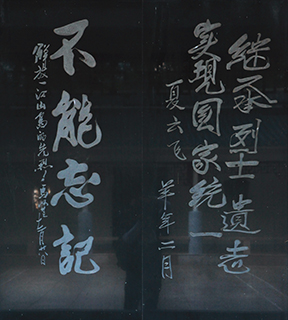 继承烈士遗志
实现国家统一
夏云飞
羊年二月
不能忘记
解放一江山岛的先烈！